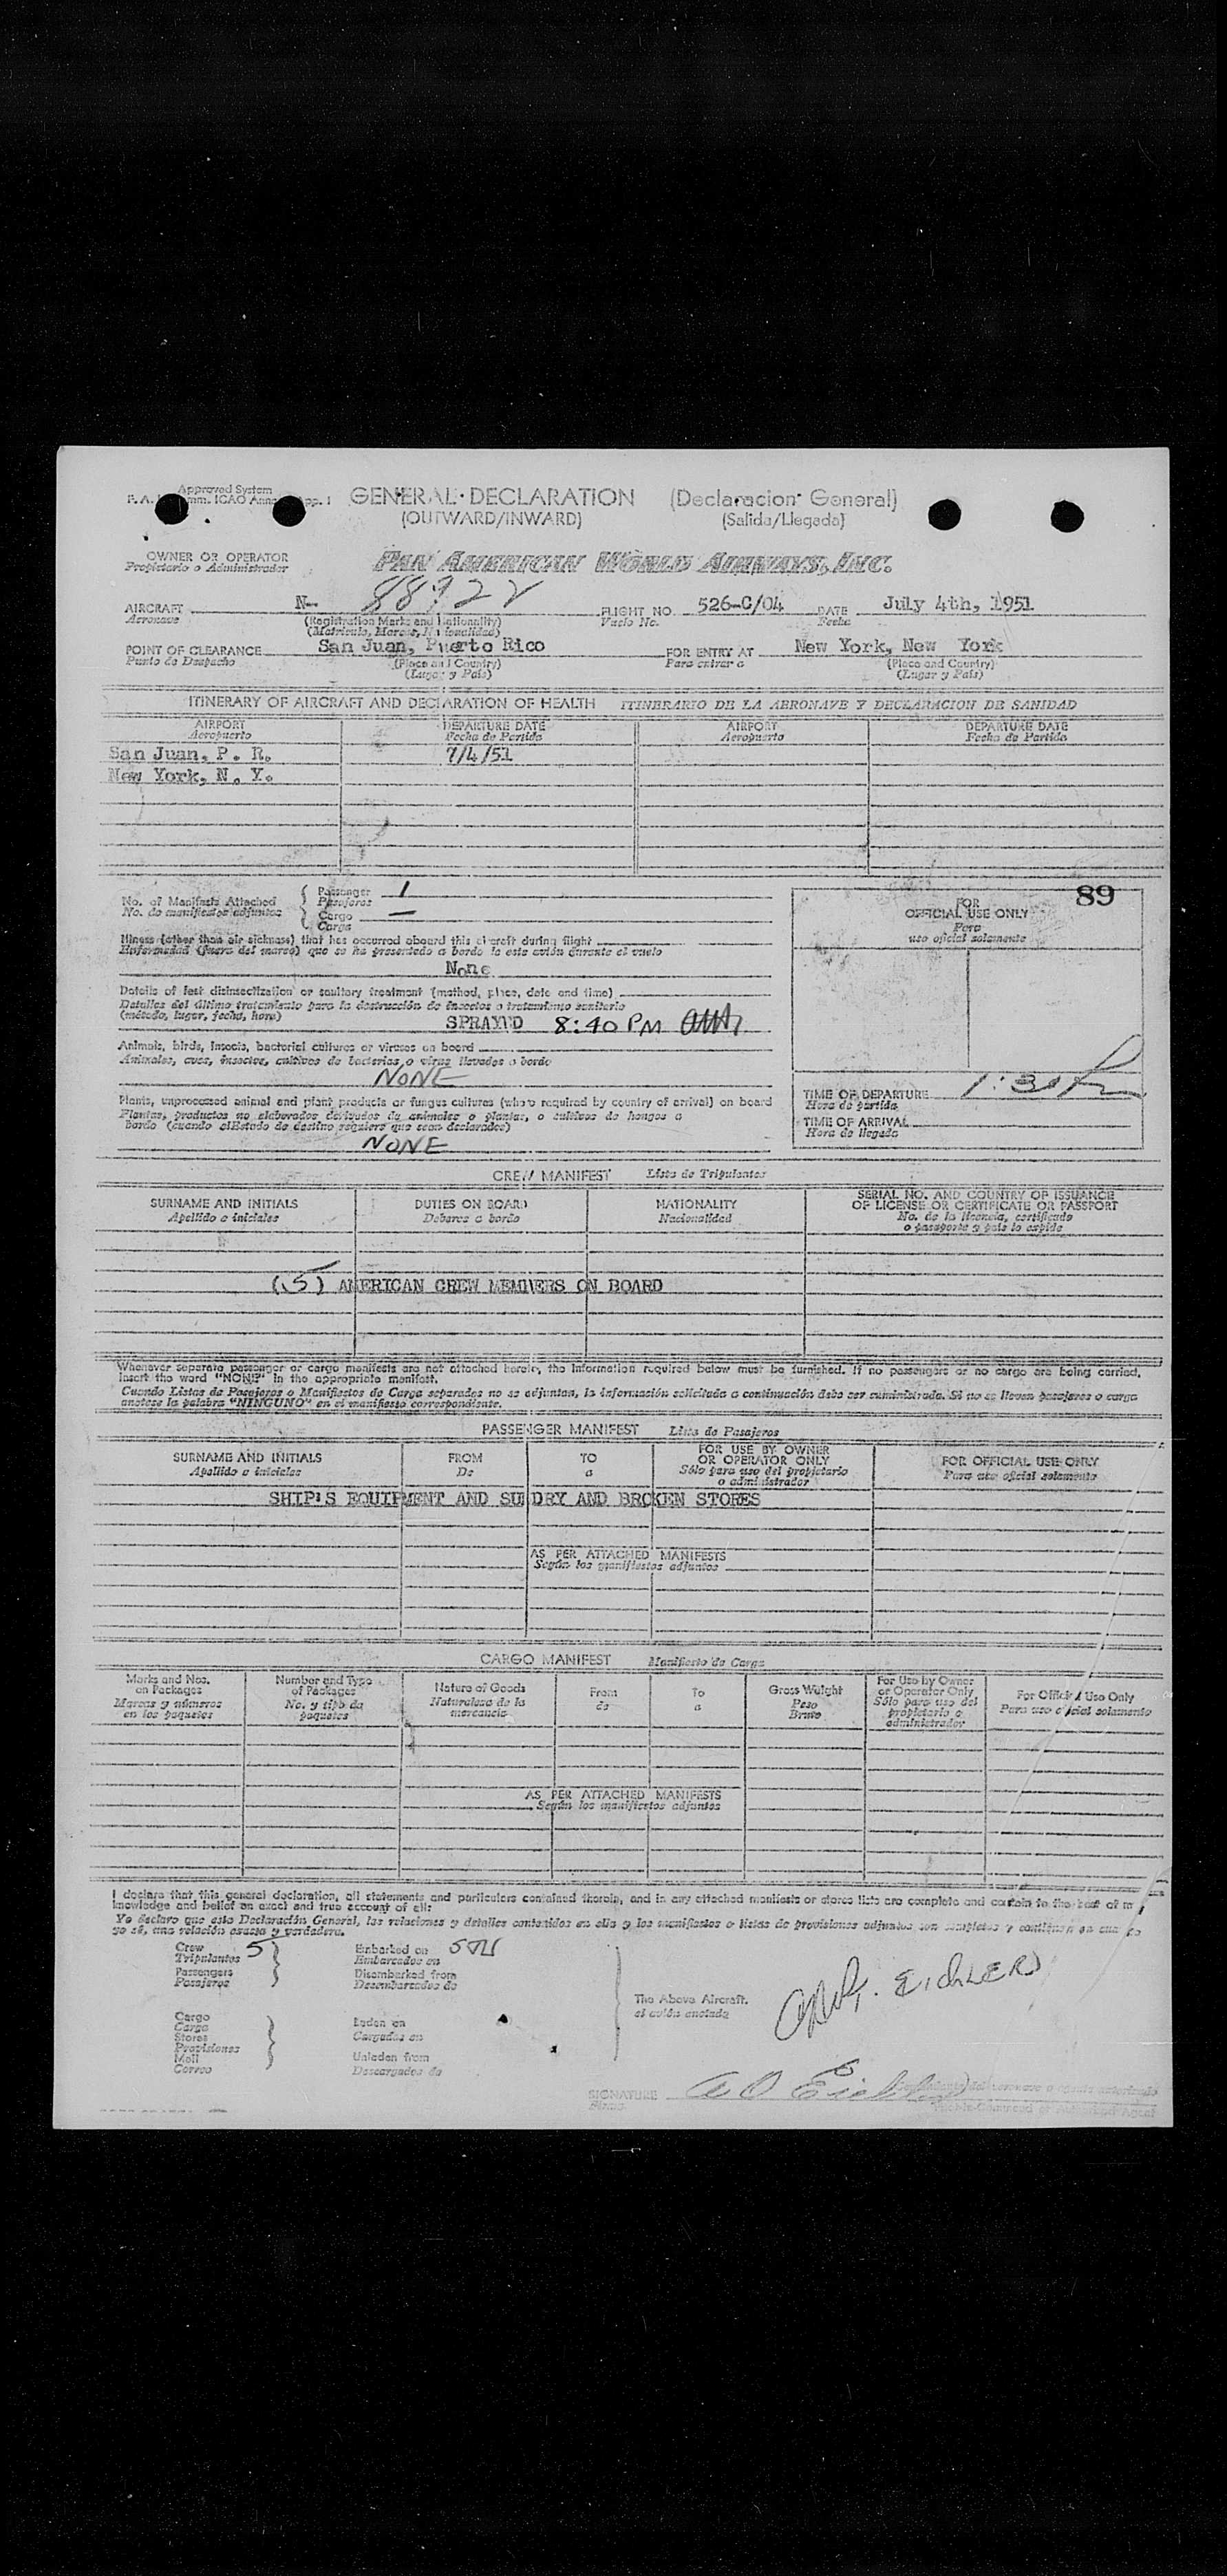 Approved System
GENERAL DECLARATION (Declaracion General)
(OUTWARD/INWARD) (Salida/Llegada)
OWNER OR OPERATOR PAN AMERICAN WORLD AIRWAYS, INC.
Propietario o Administrador
AIRCRAFT N- FLIGHT NO. 526-C/04 DATE July 4th, 1951
Aeronave (Registration Marks and Nationality) Vuelo No. Fecha
(Matricula, Marcas, Nacionalidad)
POINT OF CLEARANCE San Juan, Puerto Rico FOR ENTRY AT New York, New York
Punto de Despacho (Place and Country) Para entrar a (Place and Country)
(Lugar y País) (Lugar y País)
ITINERARY OF AIRCRAFT AND DECLARATION OF HEALTH ITINERARIO DE LA AERONAVE Y DECLARACION DE SANIDAD
AIRPORT DEPARTURE DATE AIRPORT DEPARTURE DATE
Aeropuerto Fecha de Partida Aeropuerto Fecha de Partida
San Juan, P. R. 7/4/51
New York, N. Y.
No. of Manifests Attached Passenger 1
No. de manifiestos adjuntos Pasajeros
Cargo —
Carga
89
FOR
OFFICIAL USE ONLY
Para
uso oficial solamente
Illness (other than air sickness) that has occurred aboard this aircraft during flight
Enfermedad (fuera del mareo) que se ha presentado a bordo de este avión durante el vuelo
None
Details of last disinsectization or sanitary treatment (method, place, date and time)
Detalles del último tratamiento para la destrucción de insectos o tratamiento sanitario
(método, lugar, fecha, hora)
SPRAYED 8:40 PM
Animals, birds, insects, bacterial cultures or viruses on board
Animales, aves, insectos, cultivos de bacterias o virus llevados a bordo
NONE
Plants, unprocessed animal and plant products or fungus cultures (when required by country of arrival) on board
Plantas, productos no elaborados derivados de animales o plantas, o cultivos de hongos a
bordo (cuando el Estado de destino requiere que sean declarados)
NONE
TIME OF DEPARTURE
Hora de partida
TIME OF ARRIVAL
Hora de llegada
CREW MANIFEST Lista de Tripulantes
SURNAME AND INITIALS DUTIES ON BOARD NATIONALITY SERIAL NO. AND COUNTRY OF ISSUANCE
OF LICENSE OR CERTIFICATE OR PASSPORT
Apellido e iniciales Deberes a bordo Nacionalidad No. de la licencia, certificado
o pasaporte y país lo expide
(5) AMERICAN CREW MEMBERS ON BOARD
Whenever separate passenger or cargo manifests are not attached hereto, the information required below must be furnished. If no passengers or no cargo are being carried,
insert the word "NONE" in the appropriate manifest.
Cuando Listas de Pasajeros o Manifiestos de Carga separados no se adjuntan, la información solicitada a continuación debe ser suministrada. Si no se llevan pasajeros o carga
anotese la palabra "NINGUNO" en el manifiesto correspondiente.
PASSENGER MANIFEST Lista de Pasajeros
SURNAME AND INITIALS FROM TO FOR USE BY OWNER OR OPERATOR ONLY FOR OFFICIAL USE ONLY
Apellido e iniciales De a Sólo para uso del propietario o administrador Para uso oficial solamente
SHIP'S EQUIPMENT AND SUNDRY AND BROKEN STORES
AS PER ATTACHED MANIFESTS
Según los manifiestos adjuntos
CARGO MANIFEST Manifiesto de Carga
Marks and Nos. on Packages Number and Type of Packages Nature of Goods From To Gross Weight For Use by Owner or Operator Only For Official Use Only
Marcas y números en los paquetes No. y tipo de paquetes Naturaleza de la mercancía de a Peso Bruto Sólo para uso del propietario o administrador Para uso oficial solamente
AS PER ATTACHED MANIFESTS
Según los manifiestos adjuntos
I declare that this general declaration, all statements and particulars contained therein, and in any attached manifests or stores lists are complete and contain to the best of my
knowledge and belief an exact and true account of all:
Yo declaro que esta Declaración General, las relaciones y detalles contenidos en ella y los manifiestos o listas de provisiones adjuntos son completos y contienen en cuanto
yo sé, una relación exacta y verdadera.
Crew 5 Embarked on SJU
Tripulantes Embarcados en
Passengers Disembarked from
Pasajeros Desembarcados de
The Above Aircraft.
el avión anotado
EICHLER
Cargo Laden on
Carga Cargados en
Stores
Provisiones
Mail Unladen from
Correo Descargados de
SIGNATURE
Firma